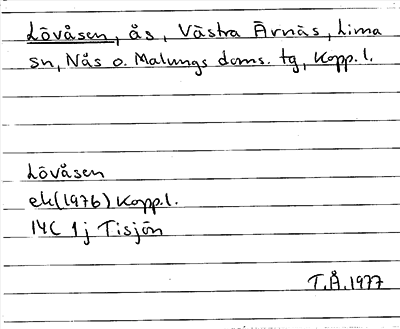 Lövåsen, ås, Västra Ärnäs, Lima
sn, Nås o. Malungs doms. tg, Kopp. l.
Lövåsen
ek(1976) Kopp.l.
14C 1j Tisjön
T.Å.1977